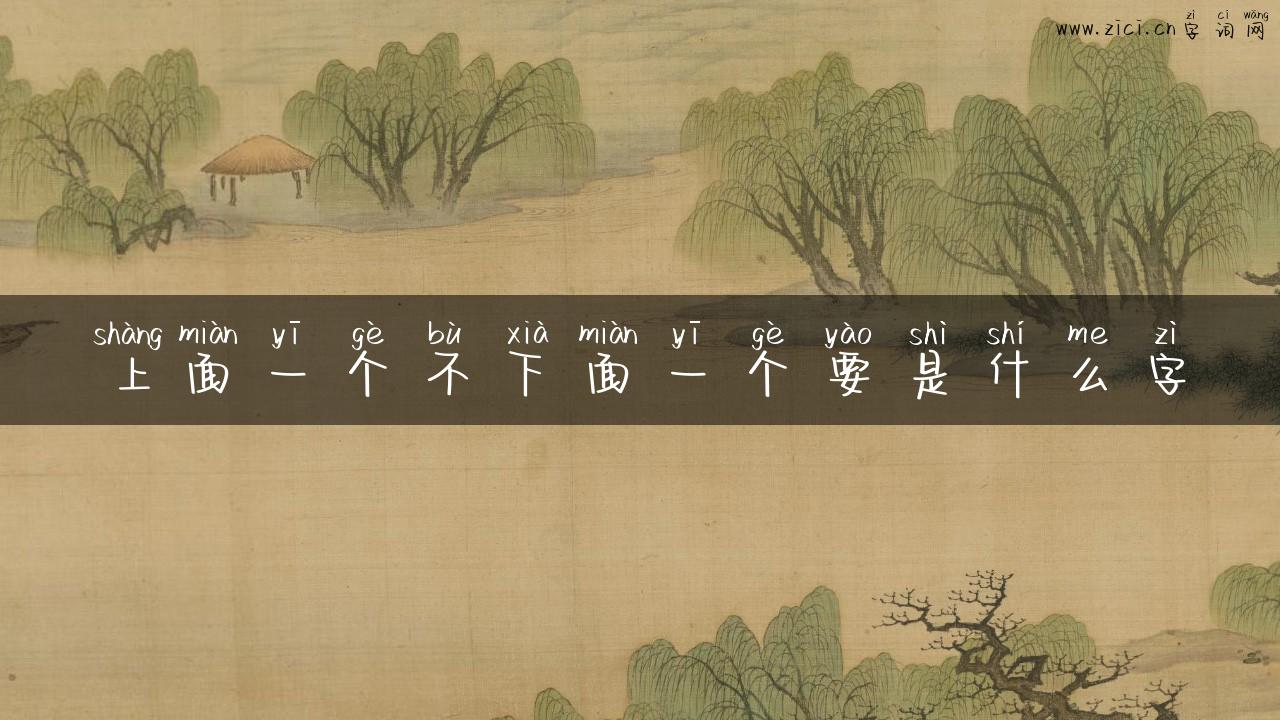 zì cí wǎng
www.zici.cn 字词网
shàng miàn yī gè bù xià miàn yī gè yào shì shí me zì
上面一个不下面一个要是什么字